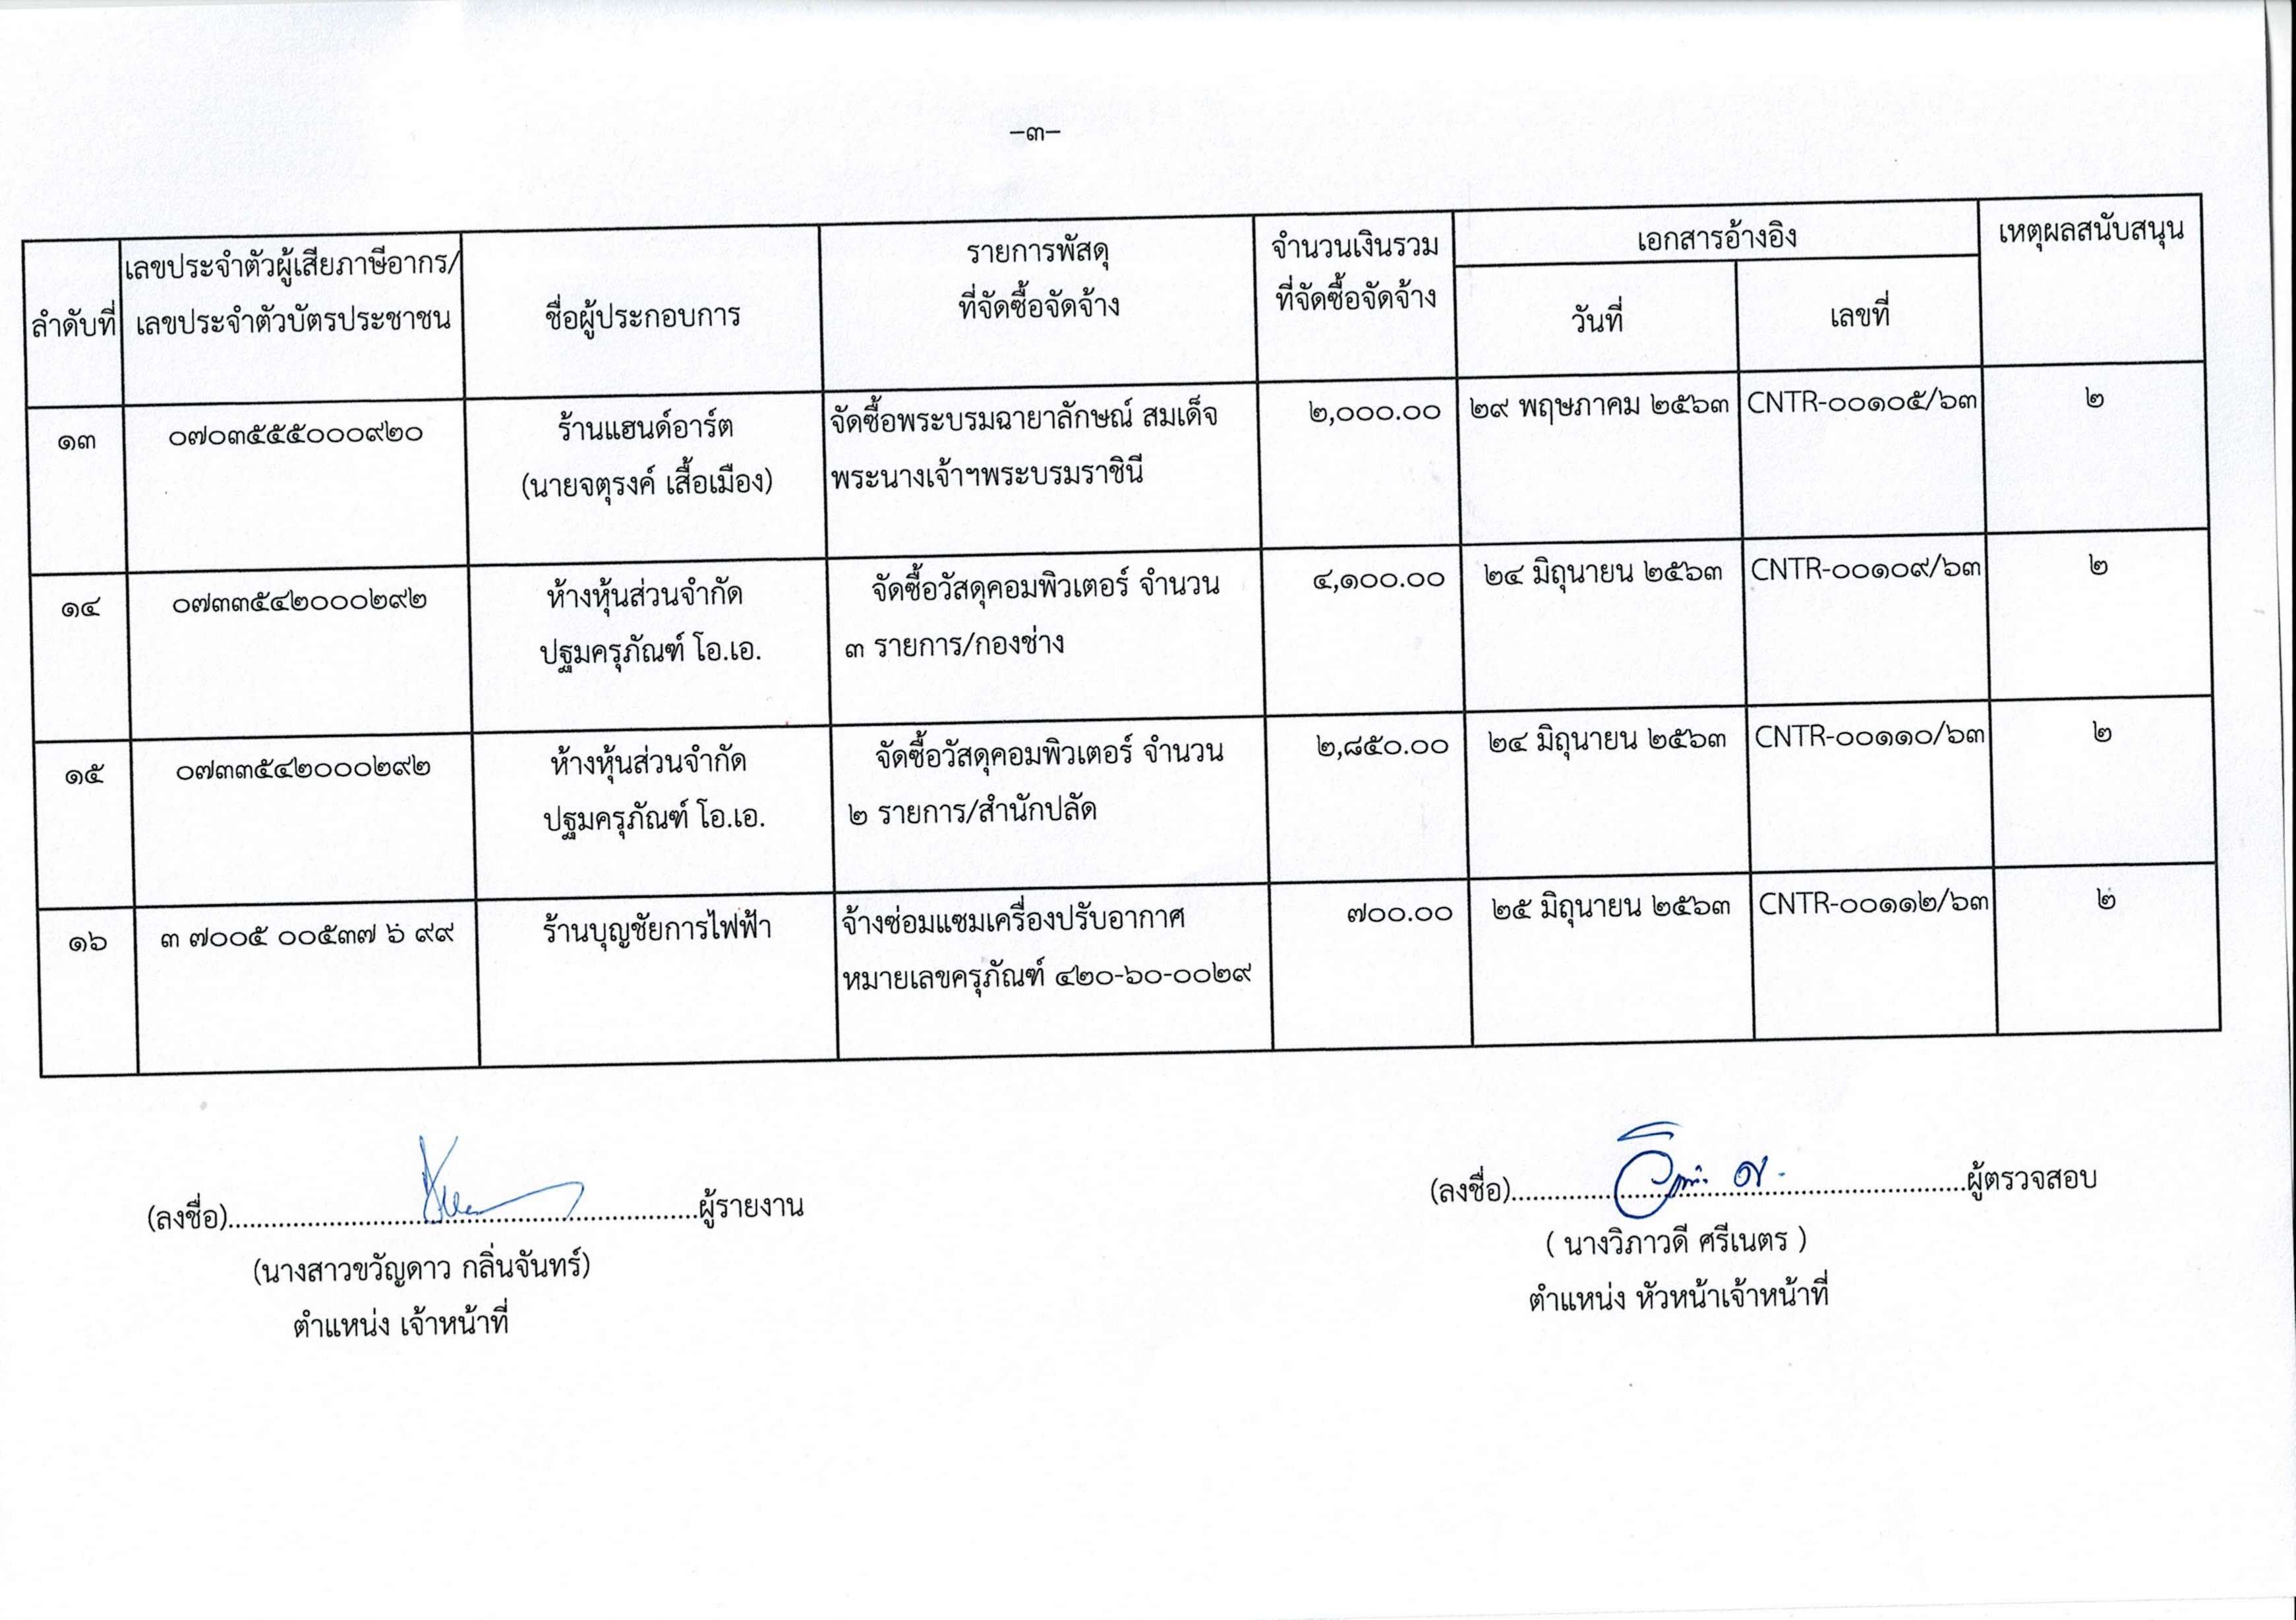 –๓–
ลำดับที่
เลขประจำตัวผู้เสียภาษีอากร/
เลขประจำตัวบัตรประชาชน
ชื่อผู้ประกอบการ
รายการพัสดุ
ที่จัดซื้อจัดจ้าง
จำนวนเงินรวม
ที่จัดซื้อจัดจ้าง
เอกสารอ้างอิง
วันที่
เลขที่
เหตุผลสนับสนุน
๑๓
๐๗๐๓๕๕๕๐๐๐๙๒๐
ร้านแฮนด์อาร์ต
(นายจตุรงค์ เสื้อเมือง)
จัดซื้อพระบรมฉายาลักษณ์ สมเด็จ
พระนางเจ้าฯพระบรมราชินี
๒,๐๐๐.๐๐
๒๙ พฤษภาคม ๒๕๖๓
CNTR-๐๐๑๐๕/๖๓
๒
๑๔
๐๗๓๓๕๔๒๐๐๐๒๙๒
ห้างหุ้นส่วนจำกัด
ปฐมครุภัณฑ์ โอ.เอ.
จัดซื้อวัสดุคอมพิวเตอร์ จำนวน
๓ รายการ/กองช่าง
๔,๑๐๐.๐๐
๒๔ มิถุนายน ๒๕๖๓
CNTR-๐๐๑๐๙/๖๓
๒
๑๕
๐๗๓๓๕๔๒๐๐๐๒๙๒
ห้างหุ้นส่วนจำกัด
ปฐมครุภัณฑ์ โอ.เอ.
จัดซื้อวัสดุคอมพิวเตอร์ จำนวน
๒ รายการ/สำนักปลัด
๒,๘๕๐.๐๐
๒๔ มิถุนายน ๒๕๖๓
CNTR-๐๐๑๑๐/๖๓
๒
๑๖
๓ ๗๐๐๕ ๐๐๕๓๗ ๖ ๙๙
ร้านบุญชัยการไฟฟ้า
จ้างซ่อมแซมเครื่องปรับอากาศ
หมายเลขครุภัณฑ์ ๔๒๐-๖๐-๐๐๒๙
๗๐๐.๐๐
๒๕ มิถุนายน ๒๕๖๓
CNTR-๐๐๑๑๒/๖๓
๒
(ลงชื่อ)..........ผู้รายงาน
(นางสาวขวัญดาว กลิ่นจันทร์)
ตำแหน่ง เจ้าหน้าที่
(ลงชื่อ)..........ผู้ตรวจสอบ
( นางวิภาวดี ศรีเนตร )
ตำแหน่ง หัวหน้าเจ้าหน้าที่